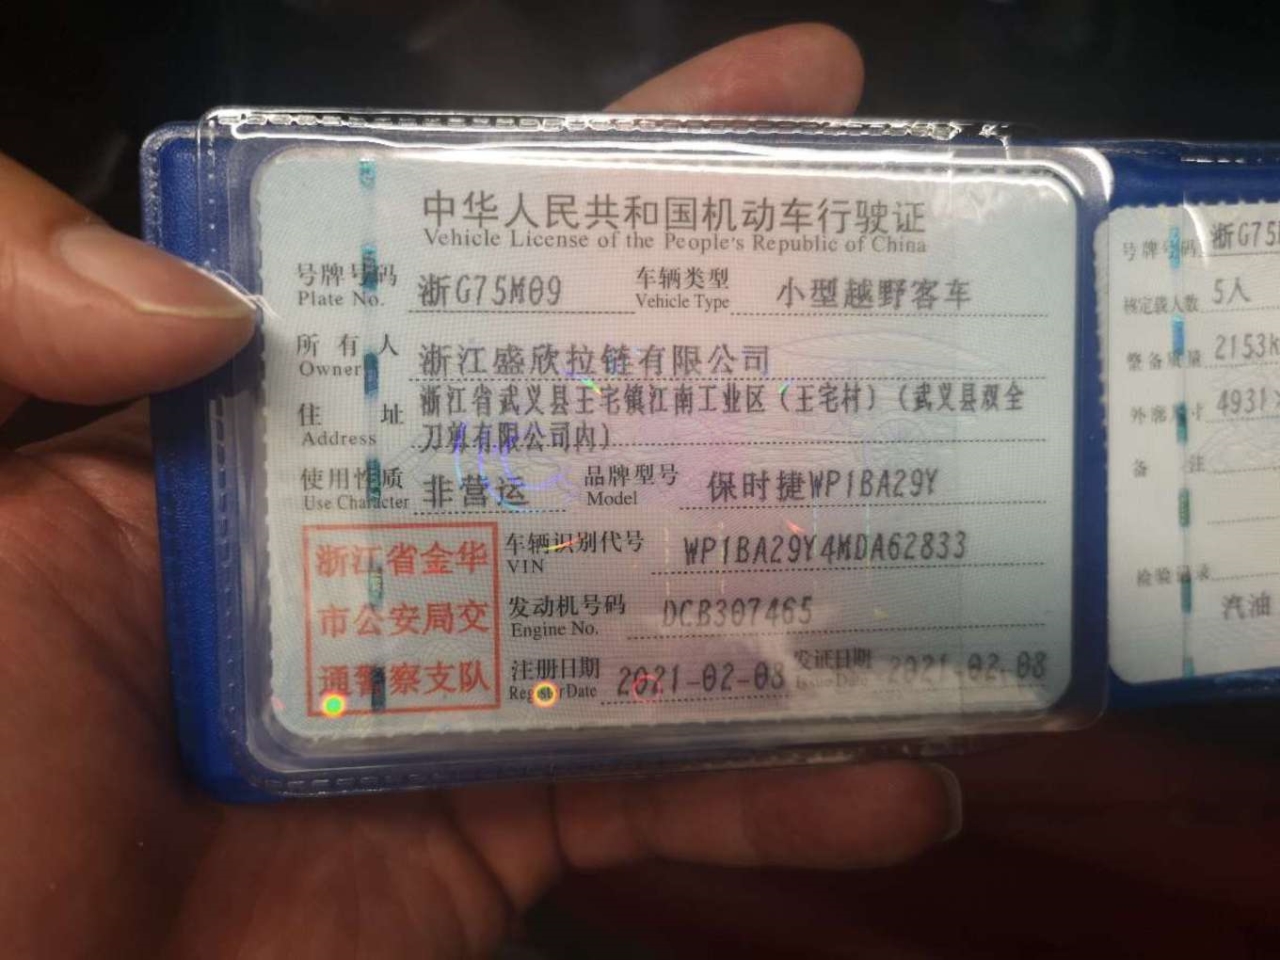 中华人民共和国机动车行驶证
Vehicle License of the People's Republic of China
号牌号码 浙G75M09 车辆类型 小型越野客车
Plate No. Vehicle Type
所有人 浙江盛欣拉链有限公司
Owner
住址 浙江省武义县王宅镇江南工业区（王宅村）（武义县双全
Address 刀剪有限公司内）
使用性质 非营运 品牌型号 保时捷WP1BA29Y
Use Character Model
浙江省金华
市公安局交
通警察支队
车辆识别代号 WP1BA29Y4MDA62833
VIN
发动机号码 DCB307465
Engine No.
注册日期 2021-02-08 发证日期 2021-02-08
Register Date Issue Date
号牌号码 浙G75
核定载人数 5人
整备质量 2153k
外廓尺寸 4931X
备注
检验记录
汽油